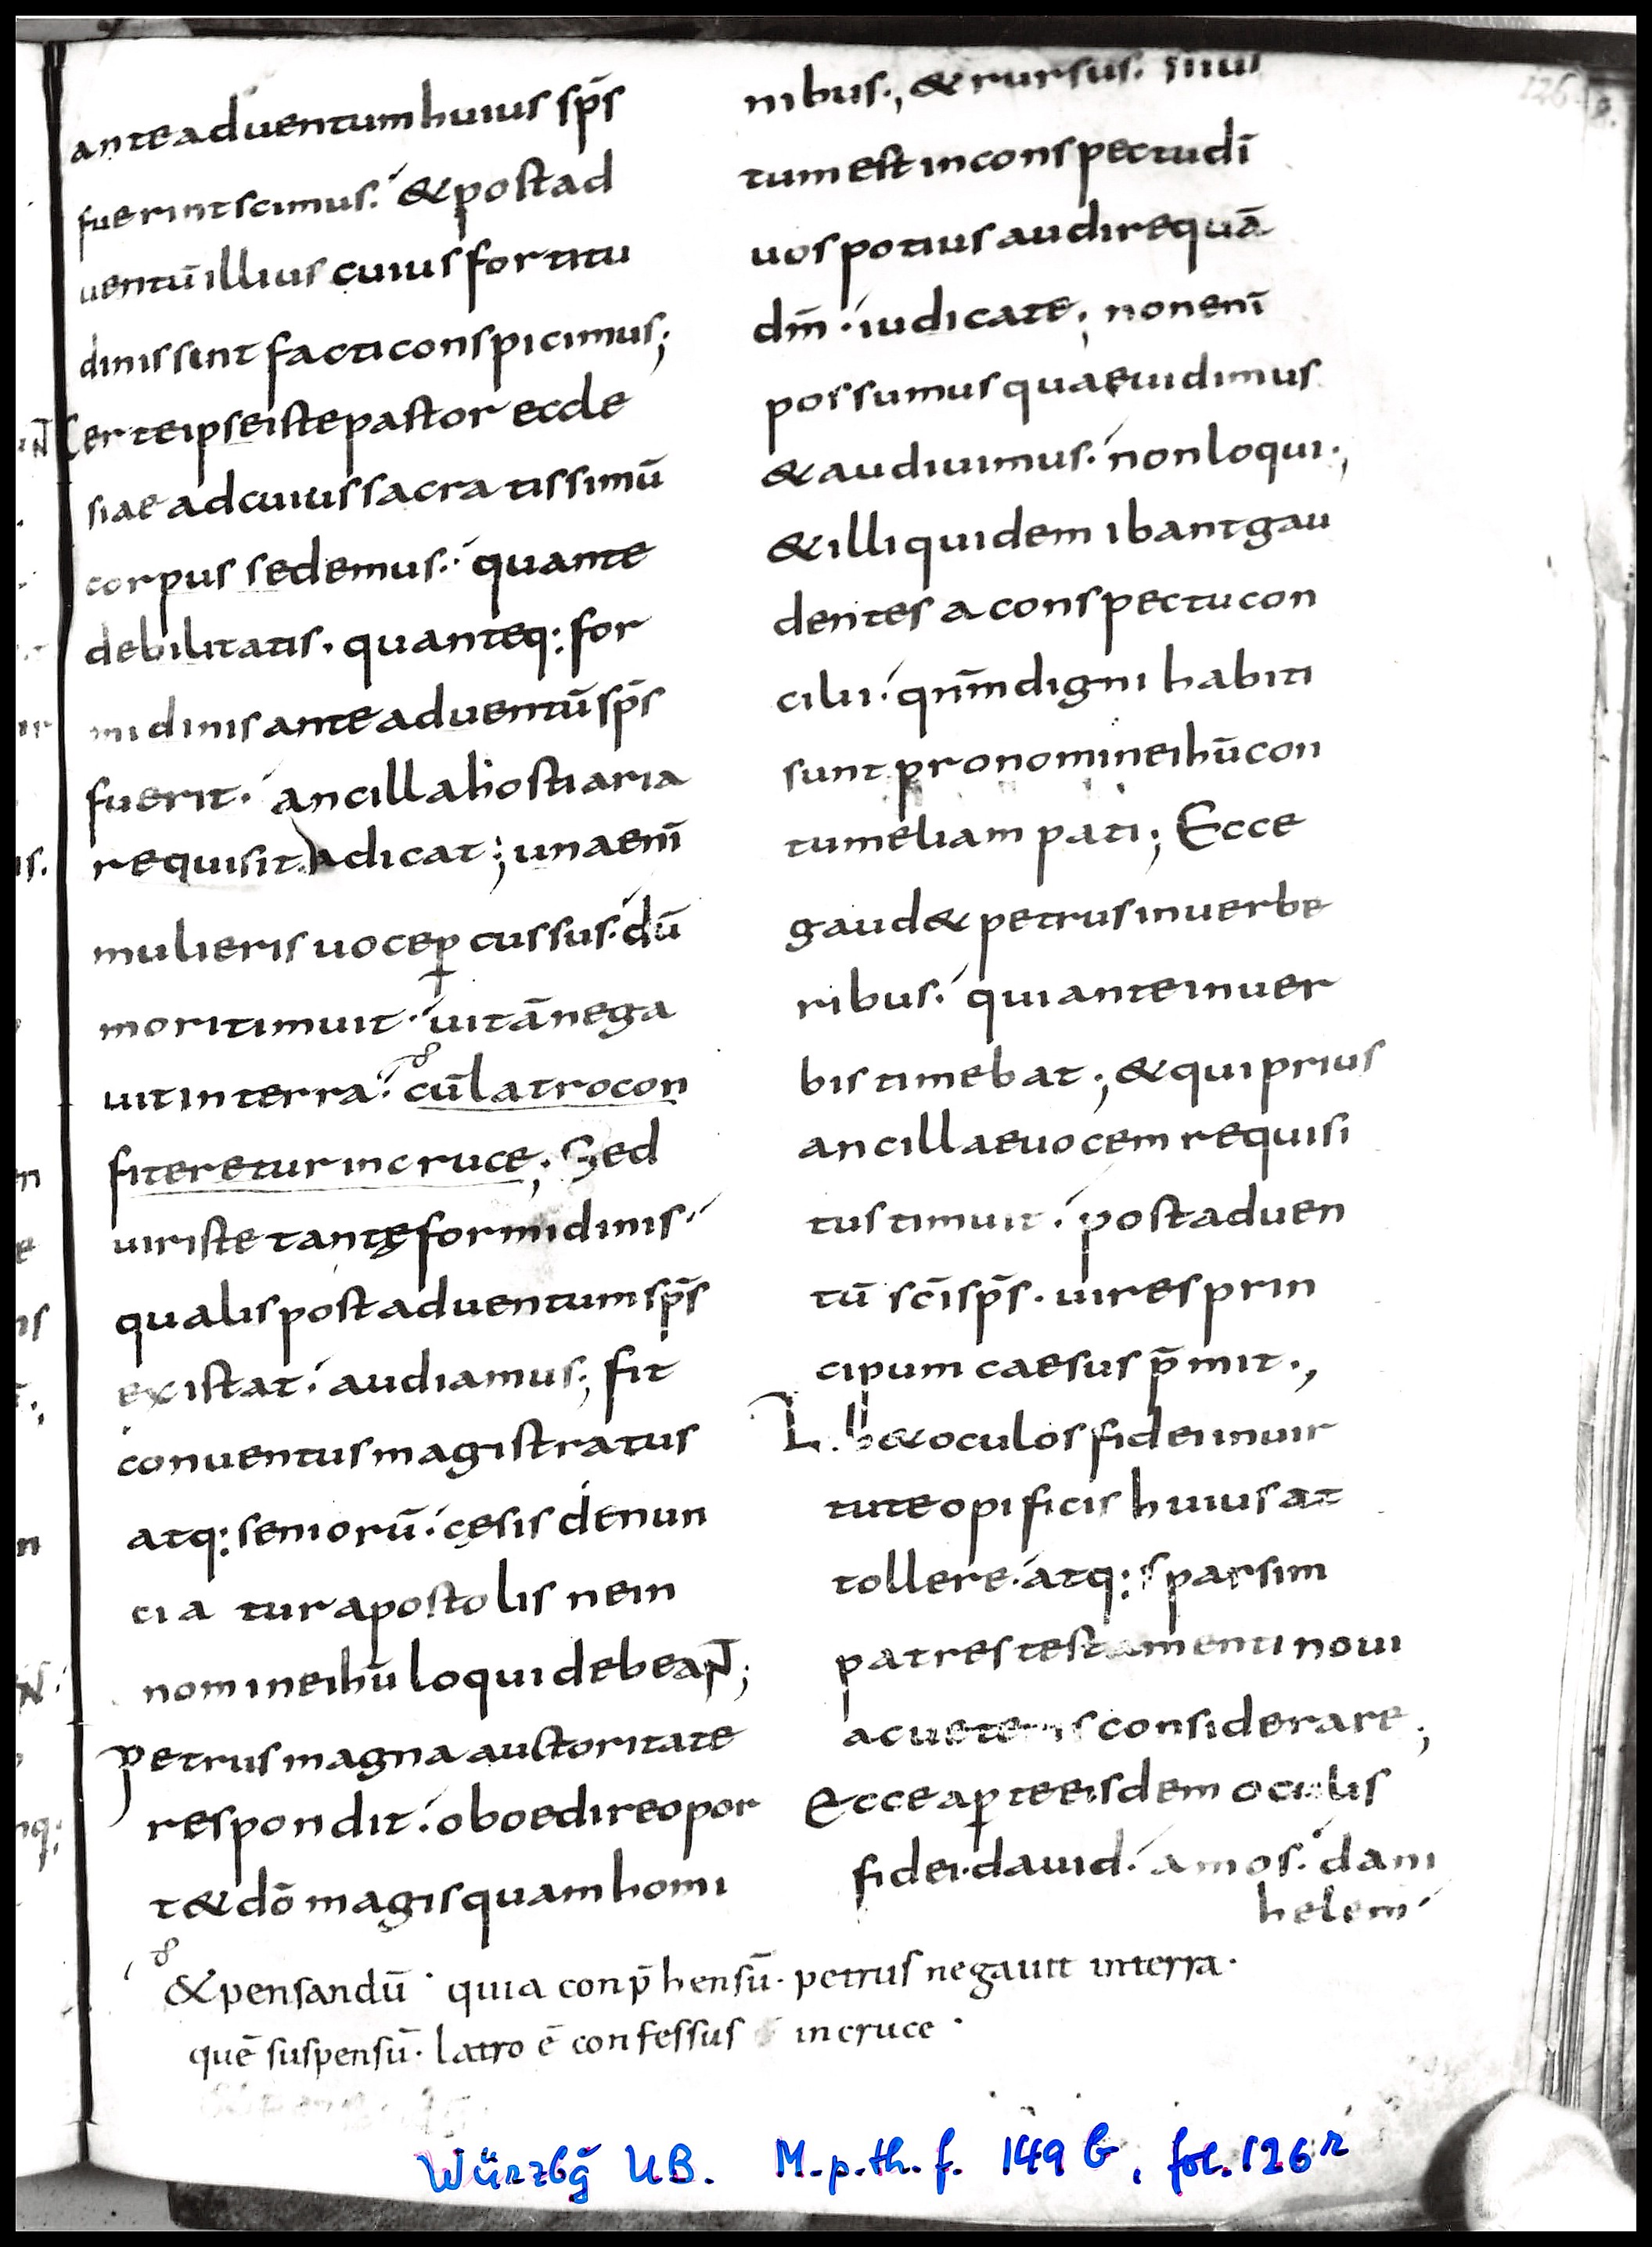 ante aduentum huius sp̄s
fuerint scimus. & post ad
uentū illius cuius fortitu
dinis sint facti conspicimus;
Certe ipse iste pastor eccle
siae ad cuius sacratissimū
corpus sedemus. quante
debilitatis. quanteq: for
midinis ante aduentū sp̄s
fuerit. ancilla hostiaria
requisita dicat; una enī
mulieris uoce ꝑcussus. dū
mori timuit. uitā nega
uit in terra. cū latro con
fiteretur in cruce; Sed
uir iste tantę formidinis.
qualis post aduentum sp̄s
existat. audiamus; fit
conuentus magistratus
atq: seniorū. cęsis denun
cia tur apostolis ne in
nomine ihū loqui debeaNT;
Petrus magna auctoritate
respondit. oboedire opor
t& dō magis quam homi
& pensandū. quia conp̄hensū. petrus negauit in terra.
quē suspensū. latro ē confessus in cruce.
126
nibus; & rursus. si ius
tum est in conspectu dī
uos potius audire quā
dm̄. iudicate; non enī
possumus quae uidimus
& audiuimus. non loqui;
& illi quidem ibant gau
dentes a conspectu con
cilii. qnm̄ digni habiti
sunt pro nomine ihū con
tumeliam pati; Ecce
gaud& petrus in uerbe
ribus. qui ante in uer
bis timebat; & qui prius
ancillae uocem requisi
tus timuit. post aduen
tū sc̄i sp̄s. uires prin
cipum caesus p̄mit.,
Lib& oculos fidei in uir
tute opificis huius at
tollere. atq: sparsim
patres testamenti noui
ac ueteris considerare;
Ecce aꝑte eisdem oculis
fidei. dauid. amos. dani
helem
Würzbg UB. M.p.th.f. 149 b, fol. 126 r